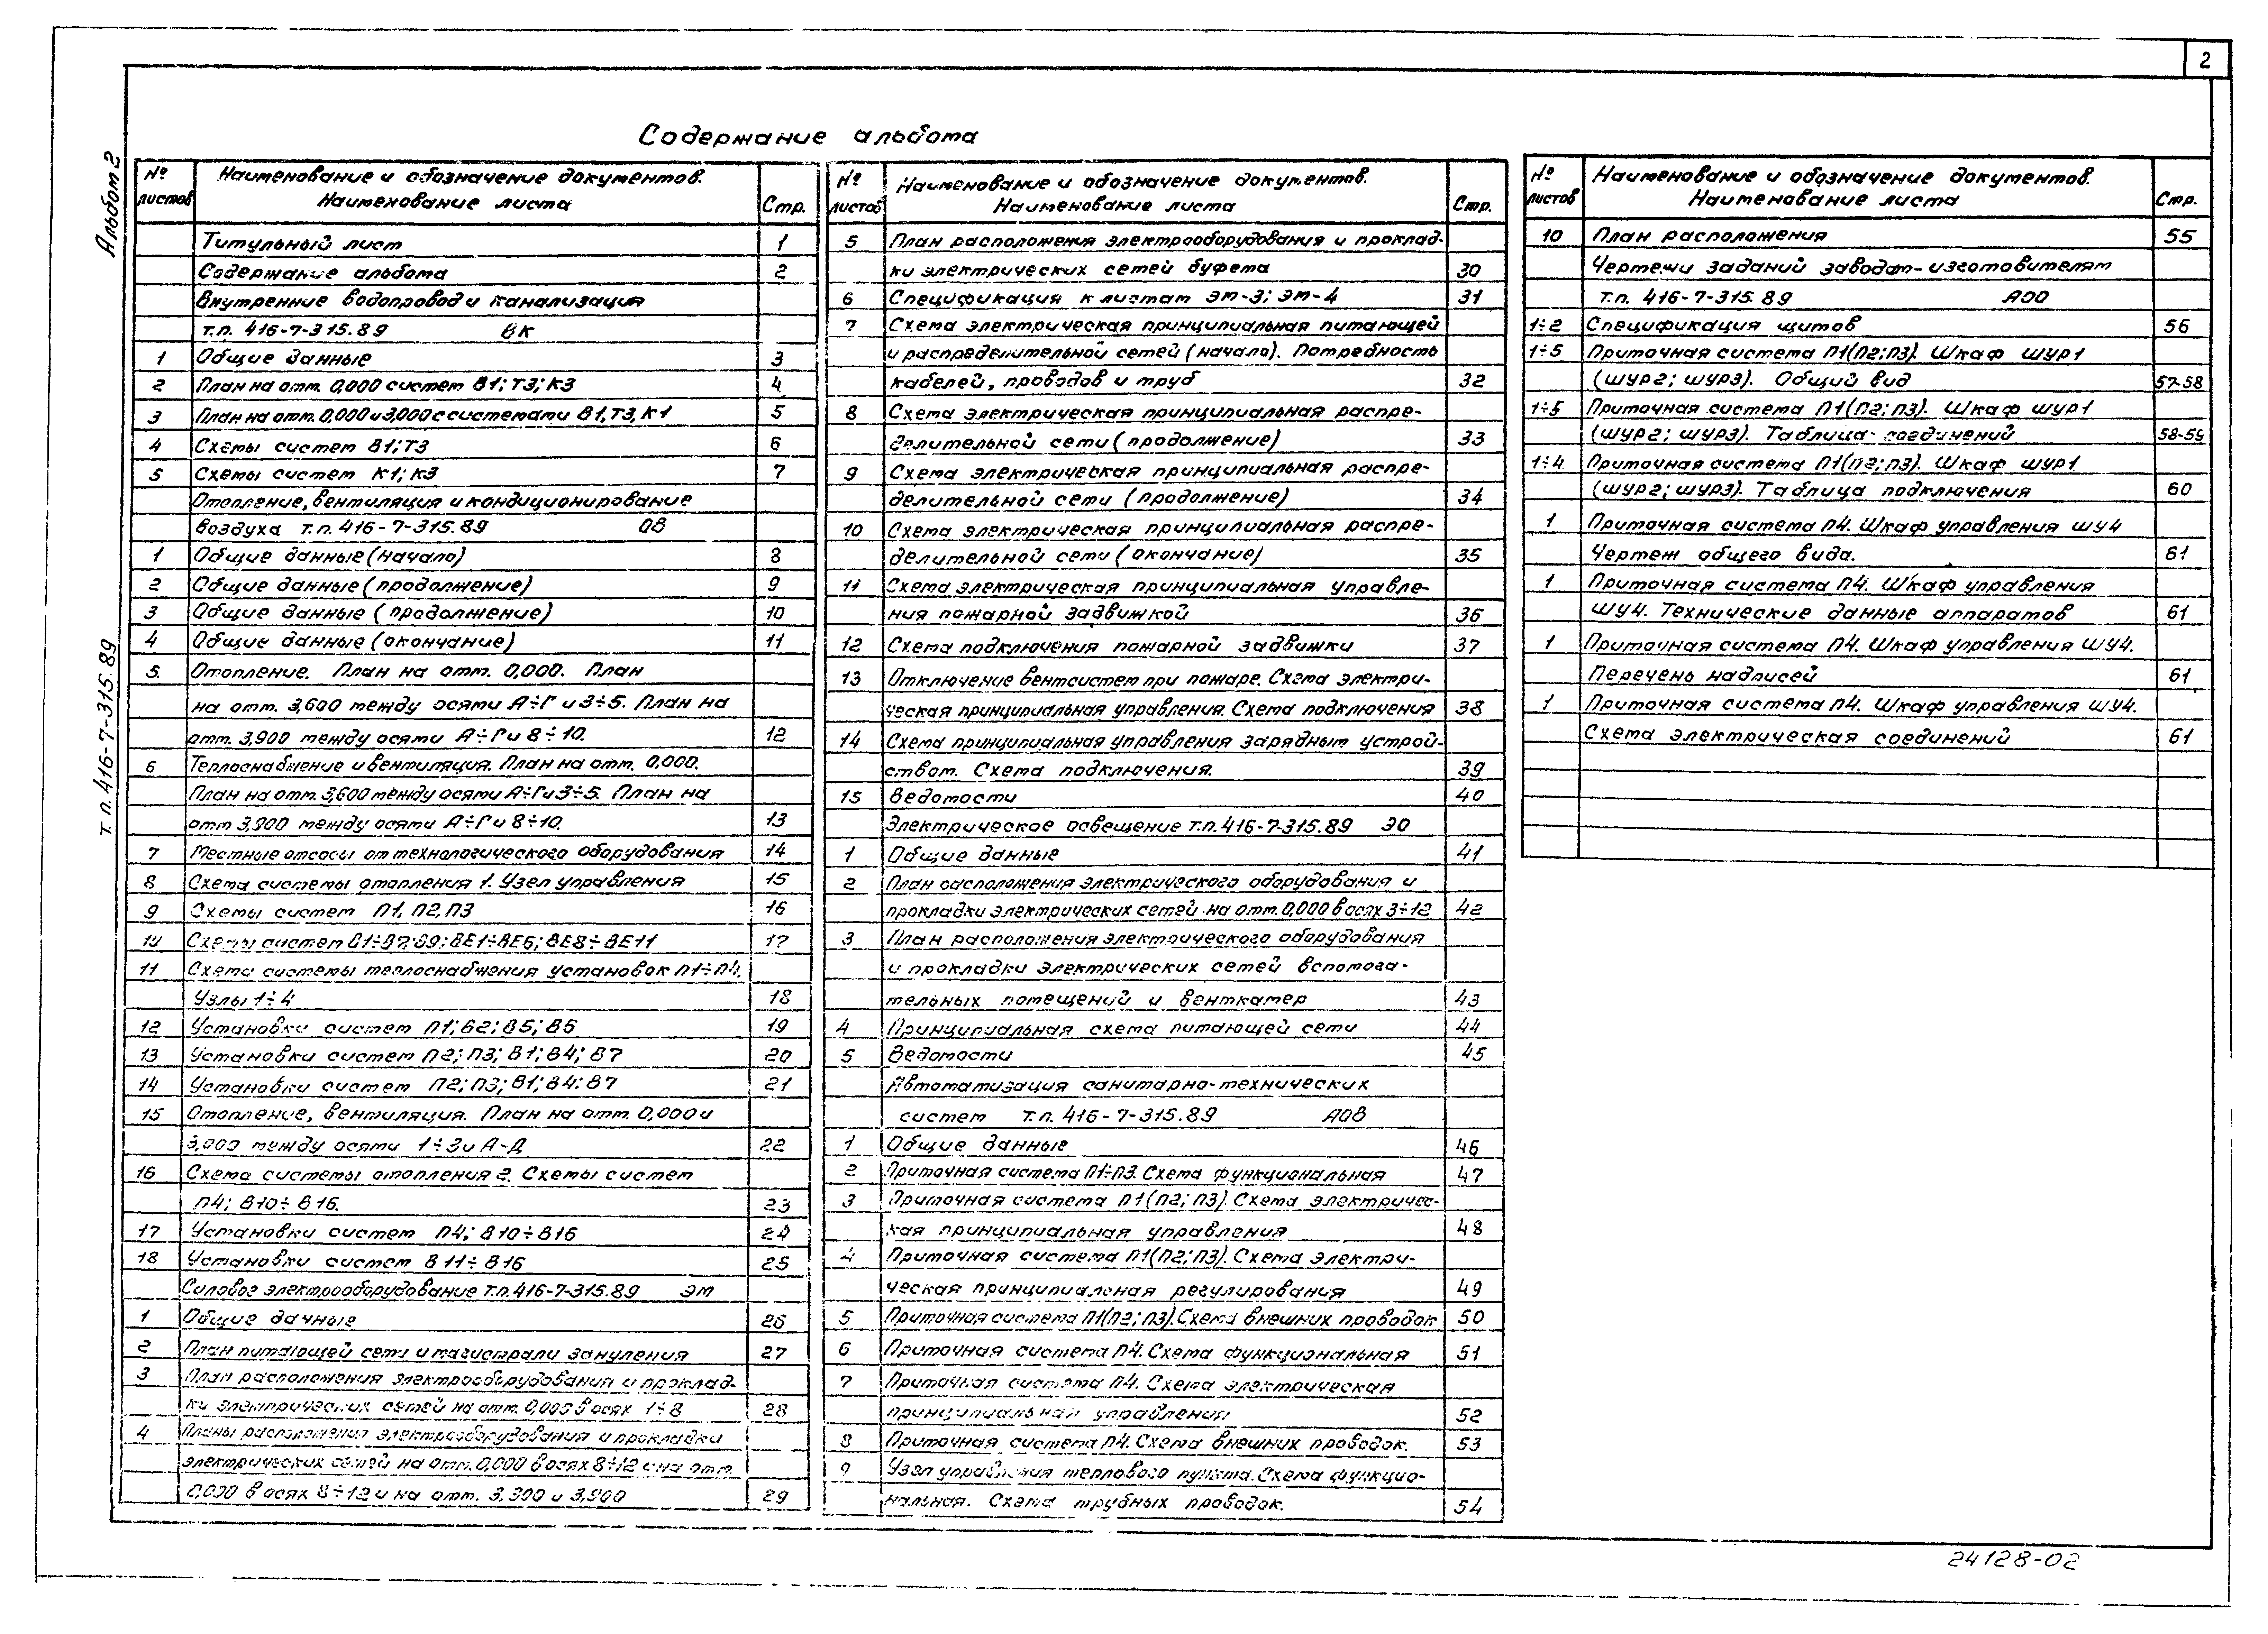 2
Содержание альбома
Альбом 2
т.п. 416-7-315.89
№ листов
Наименование и обозначение документов.
Наименование листа
Стр.
Титульный лист 1
Содержание альбома 2
Внутренние водопровод и канализация
т.п. 416-7-315.89 ВК
1 Общие данные 3
2 План на отм. 0,000 систем В1; Т3; К3 4
3 План на отм. 0,000 и 3,000 с системами В1, Т3, К1 5
4 Схемы систем В1; Т3 6
5 Схемы систем К1; К3 7
Отопление, вентиляция и кондиционирование
воздуха т.п. 416-7-315.89 ОВ
1 Общие данные (начало) 8
2 Общие данные (продолжение) 9
3 Общие данные (продолжение) 10
4 Общие данные (окончание) 11
5. Отопление. План на отм. 0,000. План
на отм. 3,600 между осями А÷Г и 3÷5. План на
отм. 3,900 между осями А÷Г и 8÷10. 12
6 Теплоснабжение и вентиляция. План на отм. 0,000.
План на отм. 3,600 между осями А÷Г и 3÷5. План на
отм 3,900 между осями А÷Г и 8÷10. 13
7 Местные отсосы от технологического оборудования 14
8 Схема системы отопления 1. Узел управления 15
9 Схемы систем П1, П2, П3 16
10 Схемы систем В1÷В7; В9; ВЕ1÷ВЕ6; ВЕ8÷ВЕ11 17
11 Схема системы теплоснабжения установок П1÷П4.
Узлы 1÷4 18
12 Установки систем П1; В2; В5; В6 19
13 Установки систем П2; П3; В1; В4; В7 20
14 Установки систем П2; П3; В1; В4; В7 21
15 Отопление, вентиляция. План на отм. 0,000 и
3,000 между осями 1÷3 и А-Д 22
16 Схема системы отопления 2. Схемы систем
П4; В10÷В16. 23
17 Установки систем П4; В10÷В16 24
18 Установки систем В11÷В16 25
Силовое электрооборудование т.п. 416-7-315.89 ЭМ
1 Общие данные 26
2 План питающей сети и магистрали зануления 27
3 План расположения электрооборудования и проклад-
ки электрических сетей на отм. 0,000 в осях 1÷8 28
4 Планы расположения электрооборудования и прокладки
электрических сетей на отм. 0,000 в осях 8÷12 и на отм.
0,000 в осях 8÷12 и на отм. 3,300 и 3,900 29
№ листов
Наименование и обозначение документов.
Наименование листа
Стр.
5 План расположения электрооборудования и проклад-
ки электрических сетей буфета 30
6 Спецификация к листам ЭМ-3; ЭМ-4 31
7 Схема электрическая принципиальная питающей
и распределительной сетей (начало). Потребность
кабелей, проводов и труб 32
8 Схема электрическая принципиальная распре-
делительной сети (продолжение) 33
9 Схема электрическая принципиальная распре-
делительной сети (продолжение) 34
10 Схема электрическая принципиальная распре-
делительной сети (окончание) 35
11 Схема электрическая принципиальная управле-
ния пожарной задвижкой 36
12 Схема подключения пожарной задвижки 37
13 Отключение вентсистем при пожаре. Схема электри-
ческая принципиальная управления. Схема подключения 38
14 Схема принципиальная управления зарядным устрой-
ством. Схема подключения. 39
15 Ведомости 40
Электрическое освещение т.п. 416-7-315.89 ЭО
1 Общие данные 41
2 План расположения электрического оборудования и
прокладки электрических сетей на отм. 0,000 в осях 3÷12 42
3 План расположения электрического оборудования
и прокладки электрических сетей вспомога-
тельных помещений и венткамер 43
4 Принципиальная схема питающей сети 44
5 Ведомости 45
Автоматизация санитарно-технических
систем т.п. 416-7-315.89 АОВ
1 Общие данные 46
2 Приточная система П1÷П3. Схема функциональная 47
3 Приточная система П1 (П2; П3). Схема электричес-
кая принципиальная управления 48
4 Приточная система П1 (П2; П3). Схема электри-
ческая принципиальная регулирования 49
5 Приточная система П1 (П2; П3). Схема внешних проводок 50
6 Приточная система П4. Схема функциональная 51
7 Приточная система П4. Схема электрическая
принципиальная управления 52
8 Приточная система П4. Схема внешних проводок. 53
9 Узел управления теплового пункта. Схема функцио-
нальная. Схема трубных проводок. 54
№ листов
Наименование и обозначение документов.
Наименование листа
Стр.
10 План расположения 55
Чертежи заданий заводам-изготовителям
т.п. 416-7-315.89 АЭО
1÷2 Спецификация щитов 56
1÷5 Приточная система П1 (П2; П3). Шкаф ШУР1
(ШУР2; ШУР3). Общий вид 57-58
1÷5 Приточная система П1 (П2; П3). Шкаф ШУР1
(ШУР2; ШУР3). Таблица соединений 58-59
1÷4 Приточная система П1 (П2; П3). Шкаф ШУР1
(ШУР2; ШУР3). Таблица подключения 60
1 Приточная система П4. Шкаф управления ШУ4
Чертеж общего вида. 61
1 Приточная система П4. Шкаф управления
ШУ4. Технические данные аппаратов 61
1 Приточная система П4. Шкаф управления ШУ4.
Перечень надписей 61
1 Приточная система П4. Шкаф управления ШУ4.
Схема электрическая соединений 61
24128-02